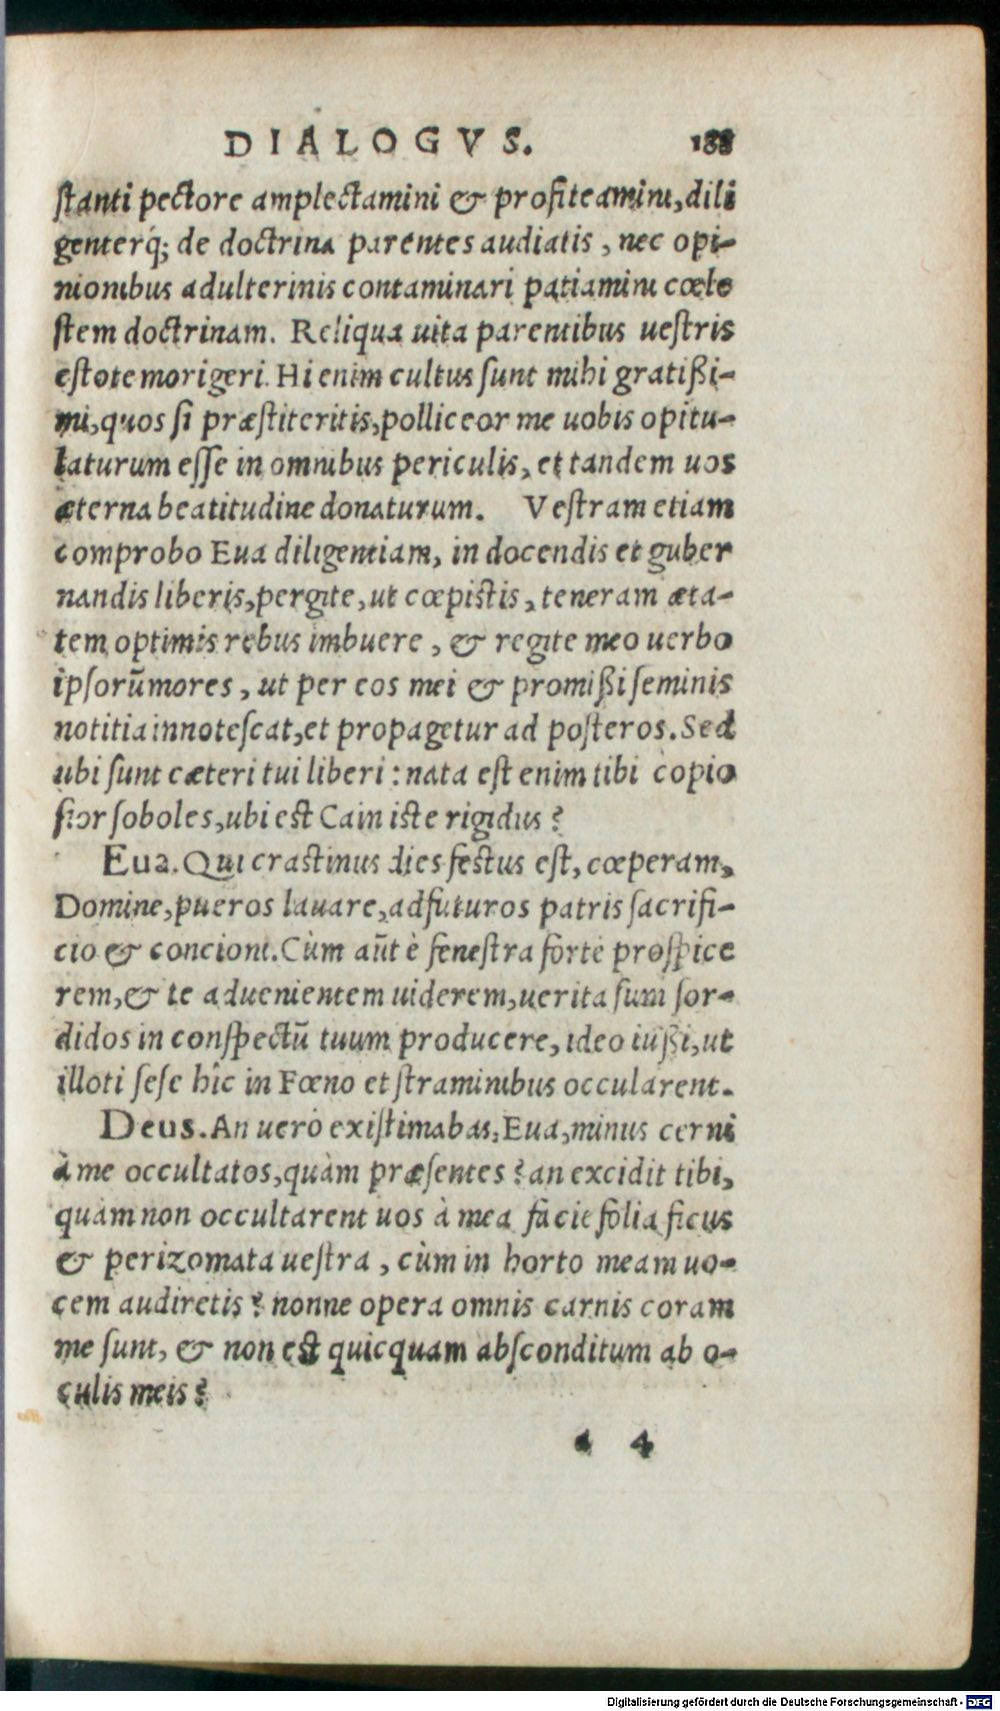 DIALOGVS. 188
stanti pectore amplectamini & profiteamini, dili
genterq́; de doctrina parentes audiatis, nec opi-
nionibus adulterinis contaminari patiamini cœle
stem doctrinam. Reliqua uita parentibus uestris
estote morigeri. Hi enim cultus sunt mihi gratißi-
mi, quos si præstiteritis, polliceor me uobis opitu-
laturum esse in omnibus periculis, et tandem uos
æterna beatitudine donaturum. Vestram etiam
comprobo Eua diligentiam, in docendis et guber
nandis liberis, pergite, ut cœpistis, teneram æta-
tem optimis rebus imbuere, & regite meo uerbo
ipsorũ mores, ut per eos mei & promißi seminis
notitia innotescat, et propagetur ad posteros. Sed
ubi sunt cæteri tui liberi: nata est enim tibi copio
sior soboles, ubi est Cain iste rigidus?
Eua. Qui crastinus dies festus est, cœperam,
Domine, pueros lauare, adfuturos patris sacrifi-
cio & concioni. Cùm aũt è fenestra forte prospice
rem, & te aduenientem uiderem, uerita sum sor-
didos in conspectũ tuum producere, ideo iußi, ut
illoti sese hîc in Fœno et straminibus occularent.
Deus. An uerò existimabas, Eua, minus cerni
à me occultatos, quàm præsentes? an excidit tibi,
quàm non occultarent uos à mea facie folia ficus
& perizomata uestra, cùm in horto meam uo-
cem audiretis? nonne opera omnis carnis coram
me sunt, & non est quicquam absconditum ab o-
culis meis?
a 4
Digitalisierung gefördert durch die Deutsche Forschungsgemeinschaft - DFG